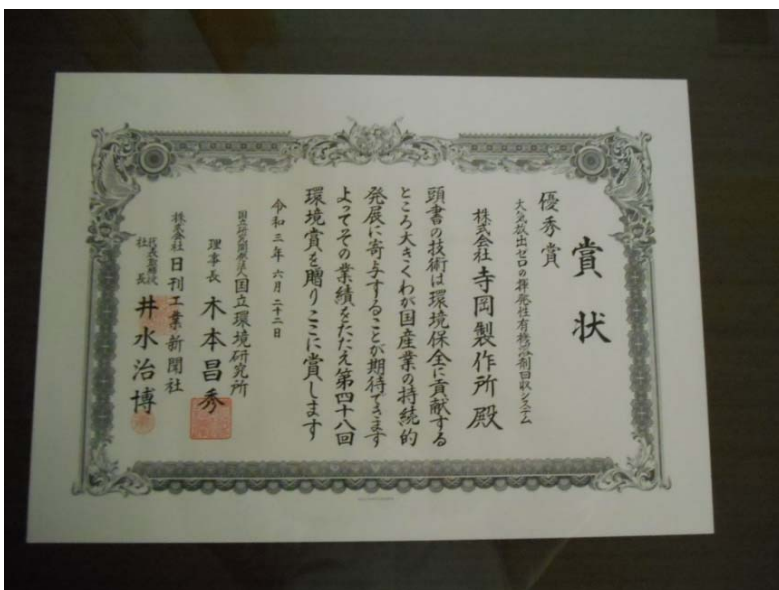 賞状
優秀賞
大気放出ゼロの揮発性有機溶剤回収システム
株式会社 寺岡製作所 殿
頭書の技術は環境保全に貢献する
ところ大きくわが国産業の持続的
発展に寄与することが期待できます
よってその業績をたたえ第四十八回
環境賞を贈りここに賞します
令和三年六月二十二日
国立研究開発法人国立環境研究所
理事長 木本昌秀
株式会社 日刊工業新聞社
代表取締役社長 井水治博